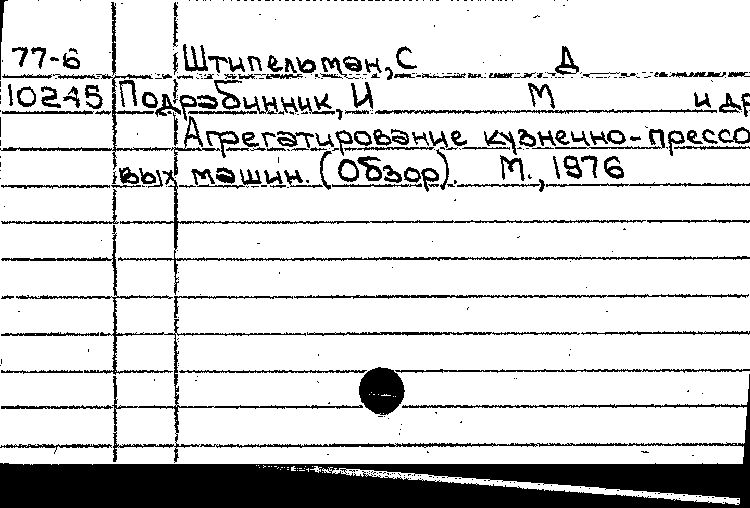 77-6 Штипельман, С Д
10245 Подрабинник, И М и др
Агрегатирование кузнечно-прессо
вых машин. (Обзор). М., 1976